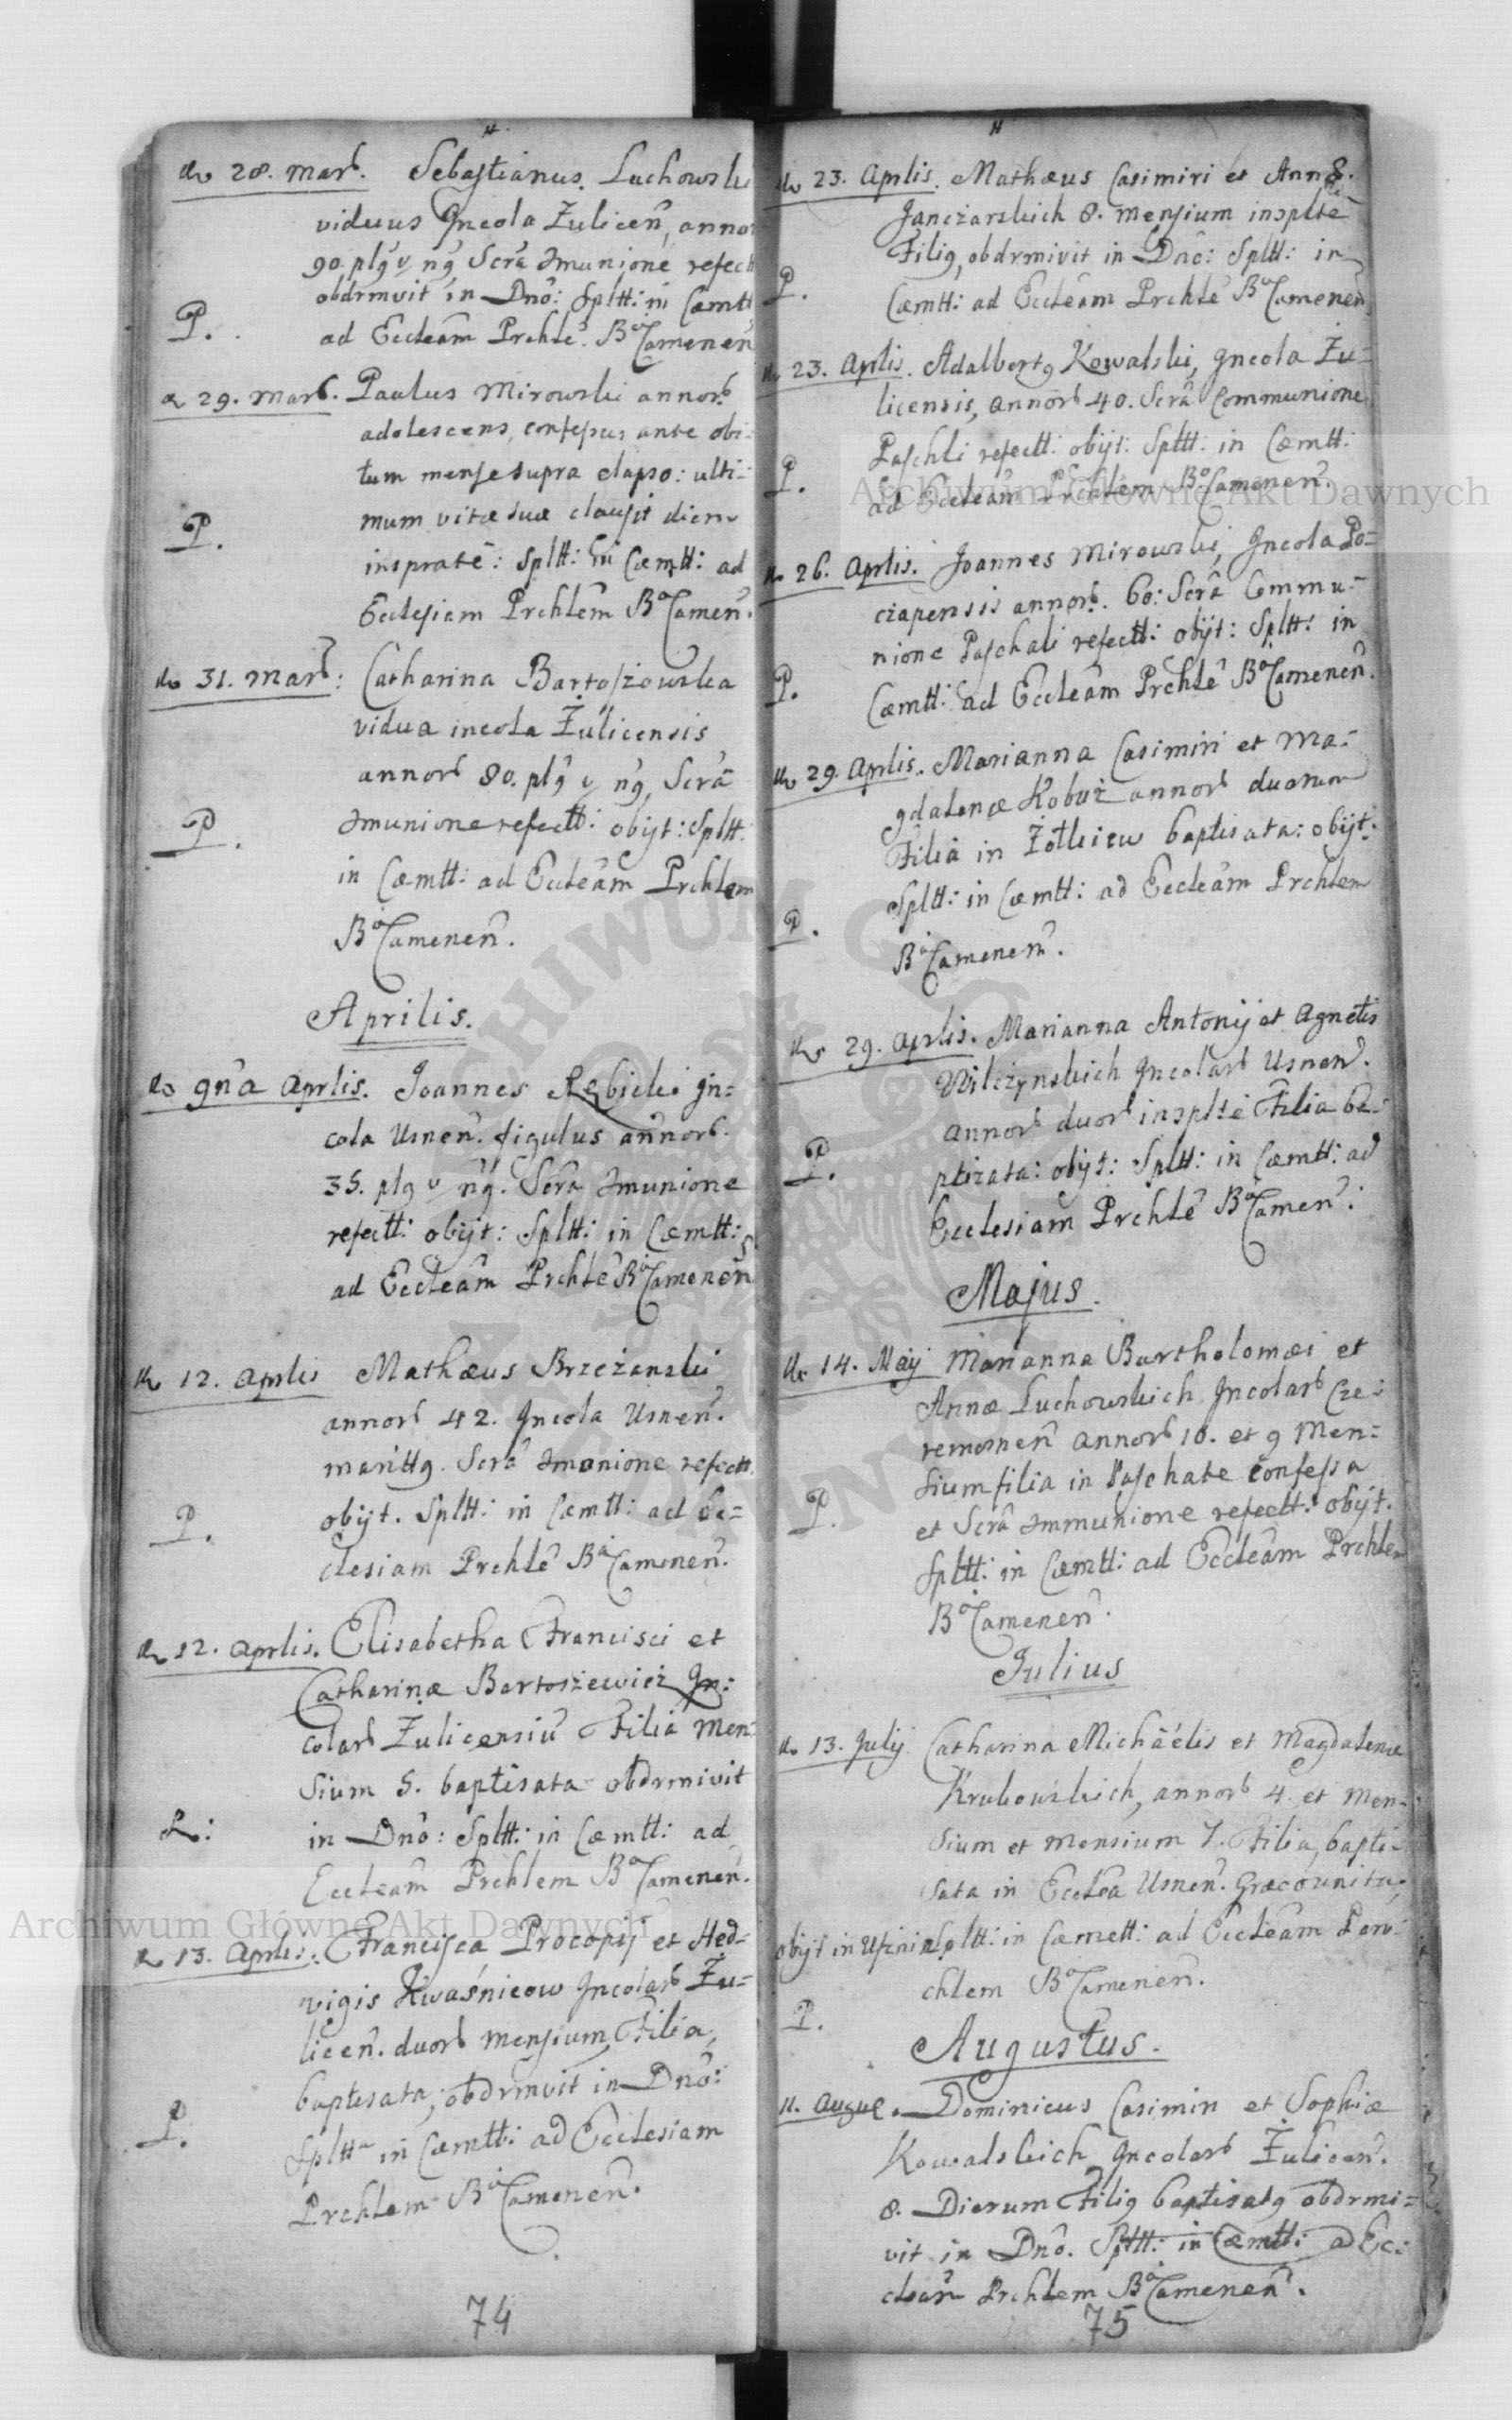 28. Mar. Sebastianus Luchowski
viduus Incola Żulicen, annor
90. Scrâ refect
obdrmvit in Dnô: Spltt: in Cæmtt
P. ad Eccleâm Prchlê. Camenen
29. Mar. Paulus Mirowski annor
adolescens, confessus ante obi-
tum mense supra elapso: ulti-
mum vitæ suæ clausit diem
P.
insprate: Spltt: in Cæmtt: ad
Ecclesiam Prchlem Camen.
31. Mar: Catharina Bartoszowska
vidua incola Żulicensis
annor 80. Scrâ
P. refectt: obijt: Spltt:
in Cæmtt: ad Eccleâm Prchlem
Camenen.
Aprilis.
9na Aprlis. Joannes Rębicki In=
cola Usnen. figulus annor.
35. Scrâ
refectt: obijt: Spltt: in Cæmtt:
ad Eccleâm Prchlê Camenen
12. Aprlis Mathæus Brzeżanski
annor 42. Incola Usnen.
Scrâ refectt.
P. obijt. Spltt: in Cæmtt: ad Ec=
clesiam Prchlê Camenen.
12. Aprlis. Elisabetha Francisci et
Catharinæ Bartoszewicz In:
colar Żulicensiu Filia Men:
sium 5. baptisata obdrmivit
in Dnô: Spltt: in Cæmtt: ad
Eccleâm Prchlem Camenen.
13. Aprlis: Francisca Procopij et Hed=
vigis Kwaśnicow Incolar Żu=
licen. duor Mensium Filia,
baptisata, obdrmvit in Dnô:
P. Spltt in Cæmtt: ad Ecclesiam
Prchlem Camenen.
74
23. Aprlis. Mathæus Casimiri et Annæ
Janczarskich 8. Mensium insplte
obdrmivit in Dnô: Spltt: in
P. Cæmtt: ad Eccleâm Prchlê Camenen
23. Aprlis. Kowalski, Incola Żu=
licensis, annor 40. Scrâ Communione
Paschli refectt: obijt: Spltt: in Cæmtt:
P. ad Eccleâm Prchlem Camenen.
26. Aprlis. Joannes Mirowski, Incola Po=
czapensis annor. 60: Scrâ Commu=
nione Paschali refectt: obijt: Spltt: in
P. Cæmtt: ad Eccleâm Prchlê Camenen.
29. Aprlis. Marianna Casimiri et Ma=
gdalenæ Kobuz annor duorum
Filia in Żołkiew baptisata: obijt:
Spltt: in Cæmtt: ad Eccleâm Prchlem
P. Camenen.
29. Aprlis. Marianna Antonij et Agnetis
Wilczynskich Incolar Usnen.
annor duor insplte Filia ba-
P. ptizata: obijt: Spltt: in Cæmtt: ad
Ecclesiam Prchlê Camen.
Majus.
14. Maij Marianna Bartholomæi et
Annæ Luchowskich Incolar Cze:
remosnen annor 10. et 9 Men=
sium filia in Paschate confessa
P. et Scrâ refectt: obijt.
Spltt: in Cæmtt: ad Eccleâm Prchlem
Camenen.
Julius
13. Julij Catharina Michaelis et Magdalenæ
Krukowskich, annor 4. et Men-
sium et Mensium 7. Filia, bapti-
sata in Ecclea Usnen. Græcounita,
obijt in Spltt: in Cæmett: ad Eccleâm Paro-
chlem Camenen.
P.
Augustus.
11. Dominicus Casimiri et Sophiæ
Kowalskich Incolar Żulicen.
8. Dierum obdrmi=
vit in Dnô. Spltt: in Cæmtt: ad Ec:
cleâm Prchlem Camenen.
75
Archiwum Główne Akt Dawnych
Archiwum Główne Akt Dawnych